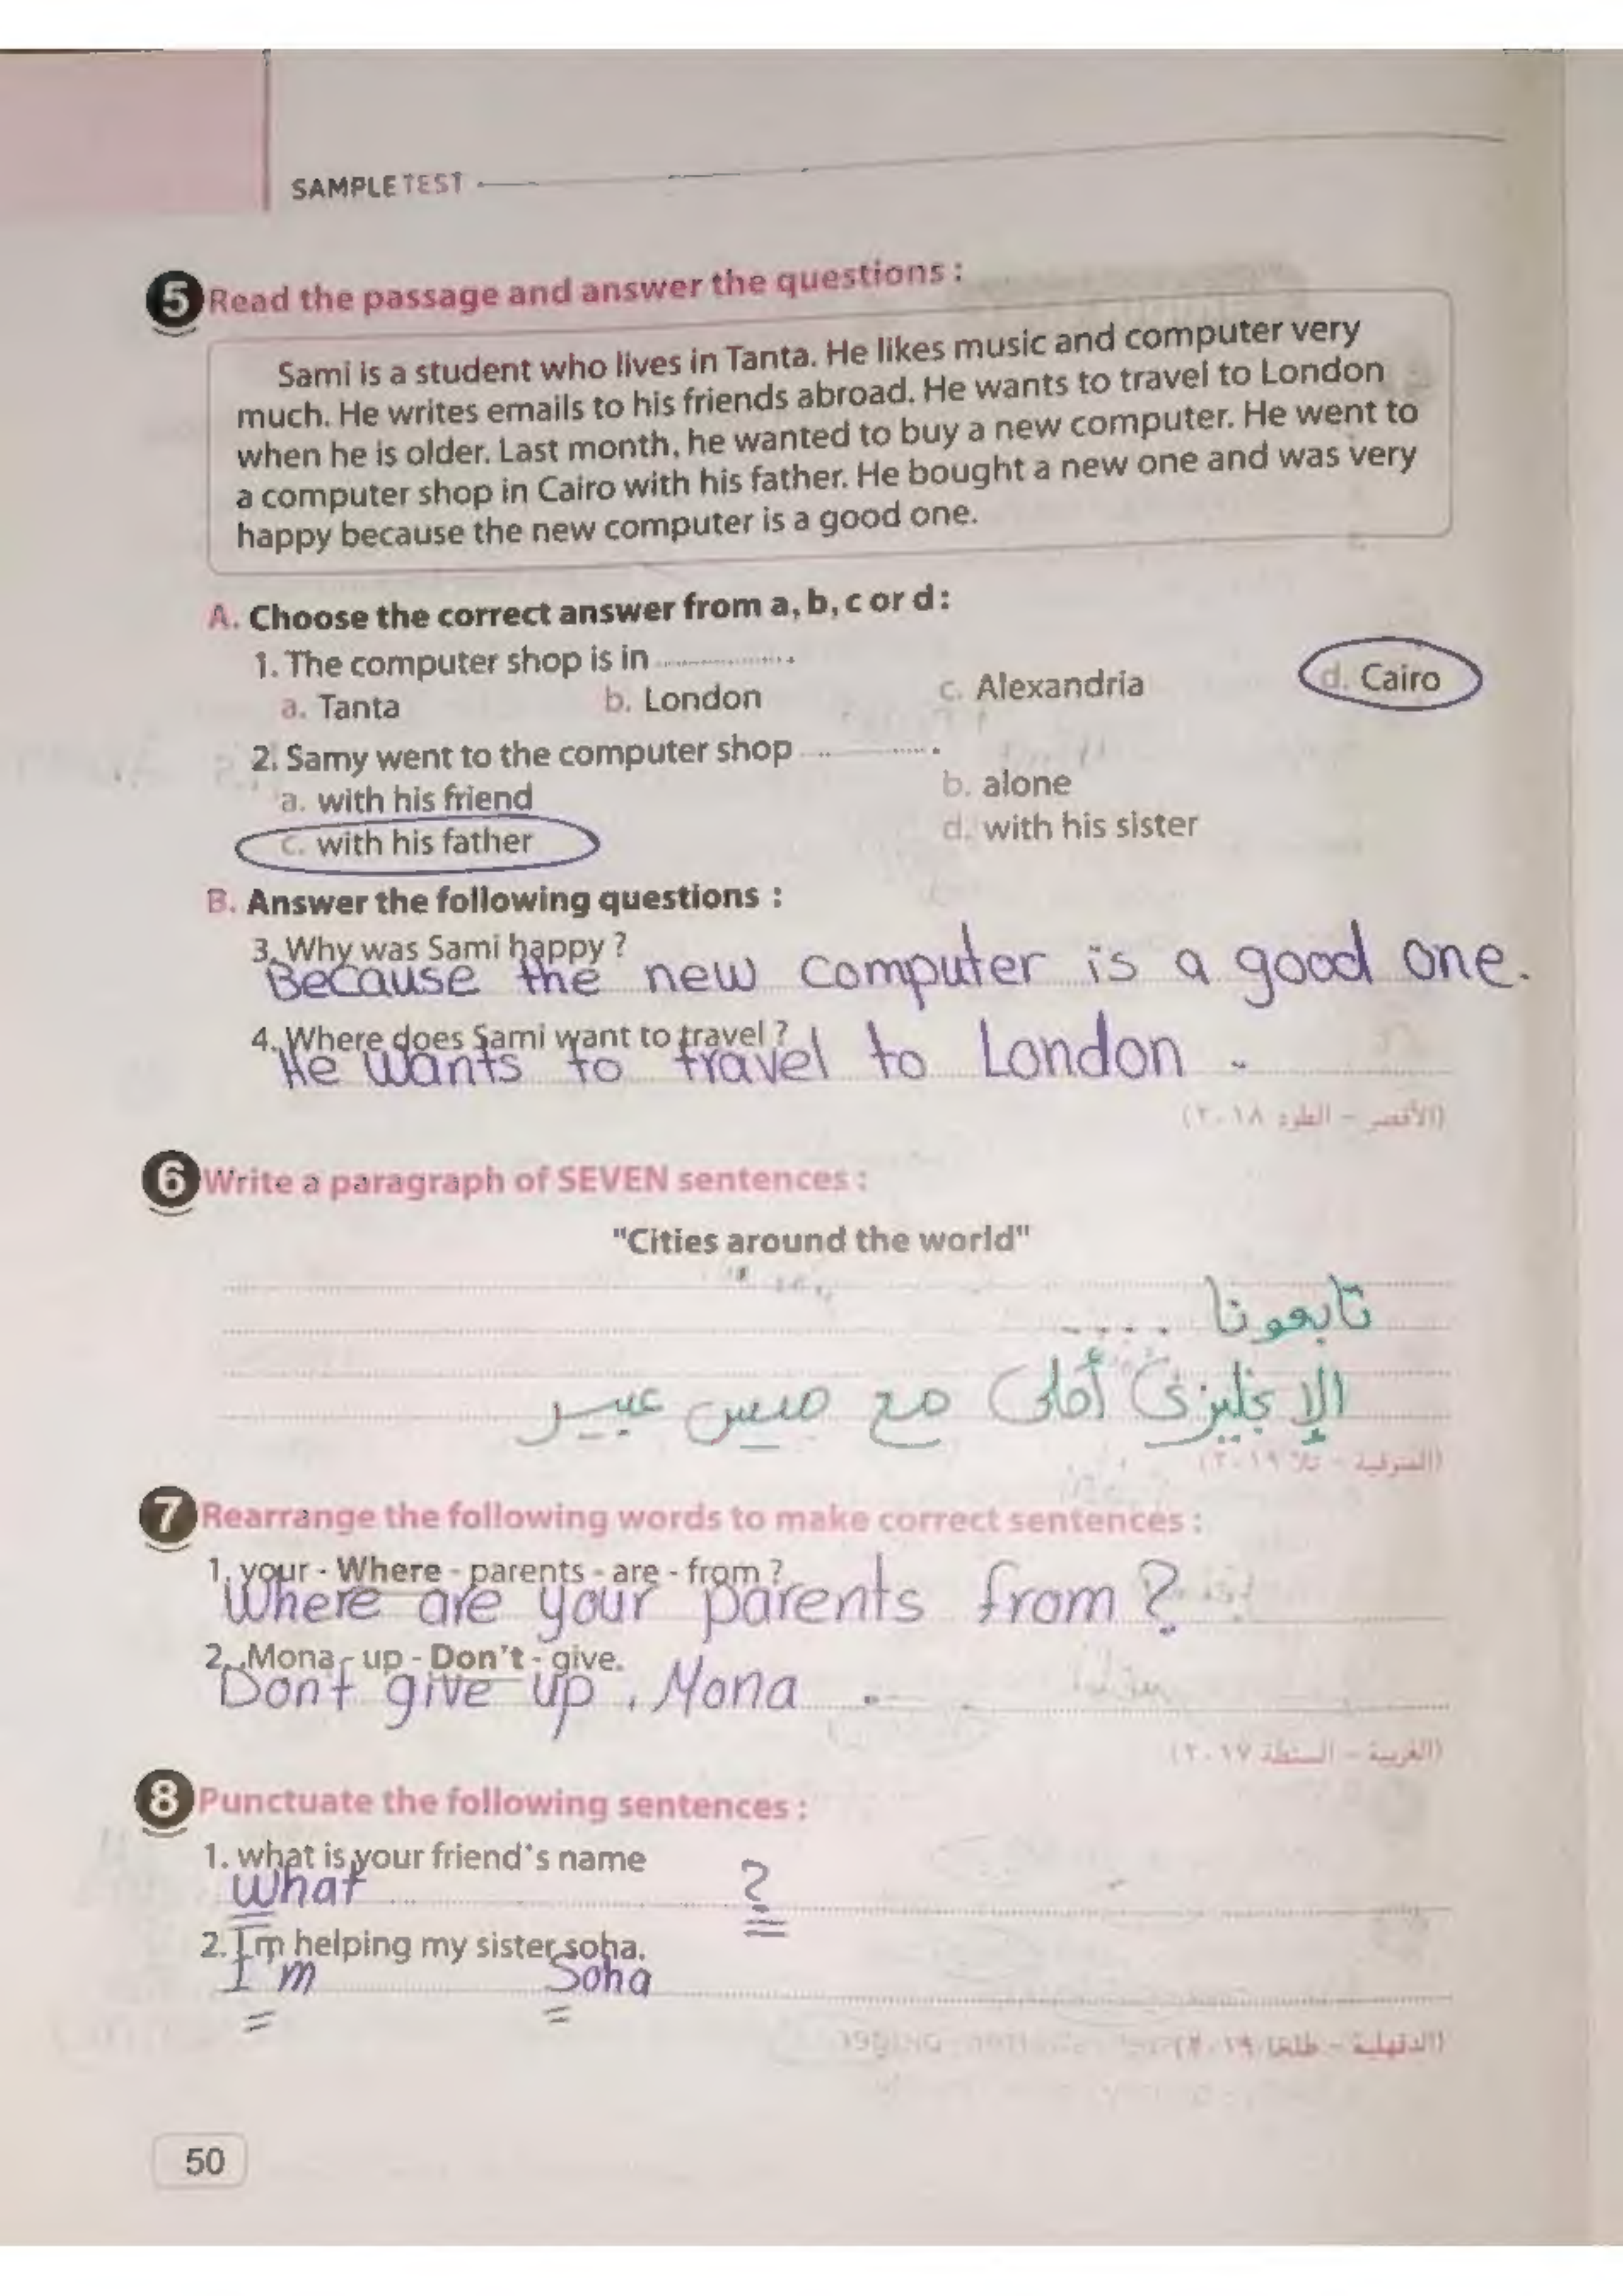 SAMPLE TEST
5 Read the passage and answer the questions :
Sami is a student who lives in Tanta. He likes music and computer very
much. He writes emails to his friends abroad. He wants to travel to London
when he is older. Last month, he wanted to buy a new computer. He went to
a computer shop in Cairo with his father. He bought a new one and was very
happy because the new computer is a good one.
A. Choose the correct answer from a, b, c or d :
1. The computer shop is in ..............
a. Tanta b. London c. Alexandria d. Cairo
2. Samy went to the computer shop ..............
a. with his friend b. alone
c. with his father d. with his sister
B. Answer the following questions :
3. Why was Sami happy ?
Because the new computer is a good one.
4. Where does Sami want to travel ?
He wants to travel to London .
(الأقصر - الطود ٢٠١٨)
6 Write a paragraph of SEVEN sentences :
"Cities around the world"
تابعونا ....
الإنجليزى أحلى مع ميس عبير
(المنوفية - تلا ٢٠١٩)
7 Rearrange the following words to make correct sentences :
1. your - Where - parents - are - from ?
Where are your parents from ?
2. Mona - up - Don't - give.
Don't give up , Mona .
(الغربية - السنطة ٢٠١٧)
8 Punctuate the following sentences :
1. what is your friend's name
What ?
2. I'm helping my sister soha.
I'm Soha
(الدقهلية - طلخا ٢٠١٩)
50